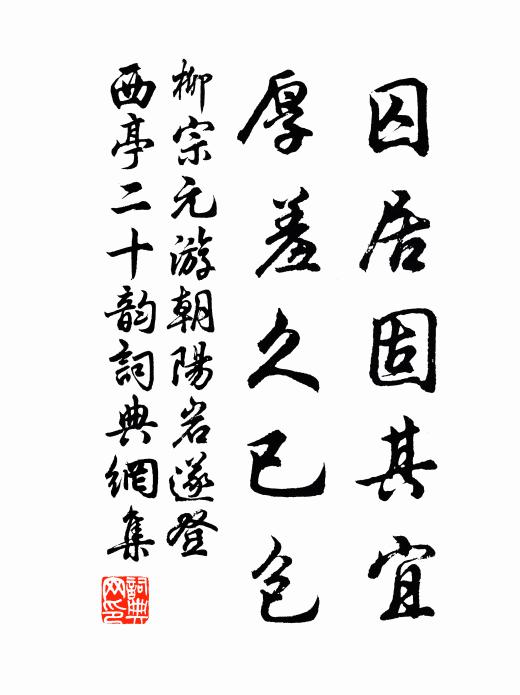 囚居固其宜
厚羞久已包
柳宗元游朝陽岩遂登
西亭二十韵詞典網集
詞典网印